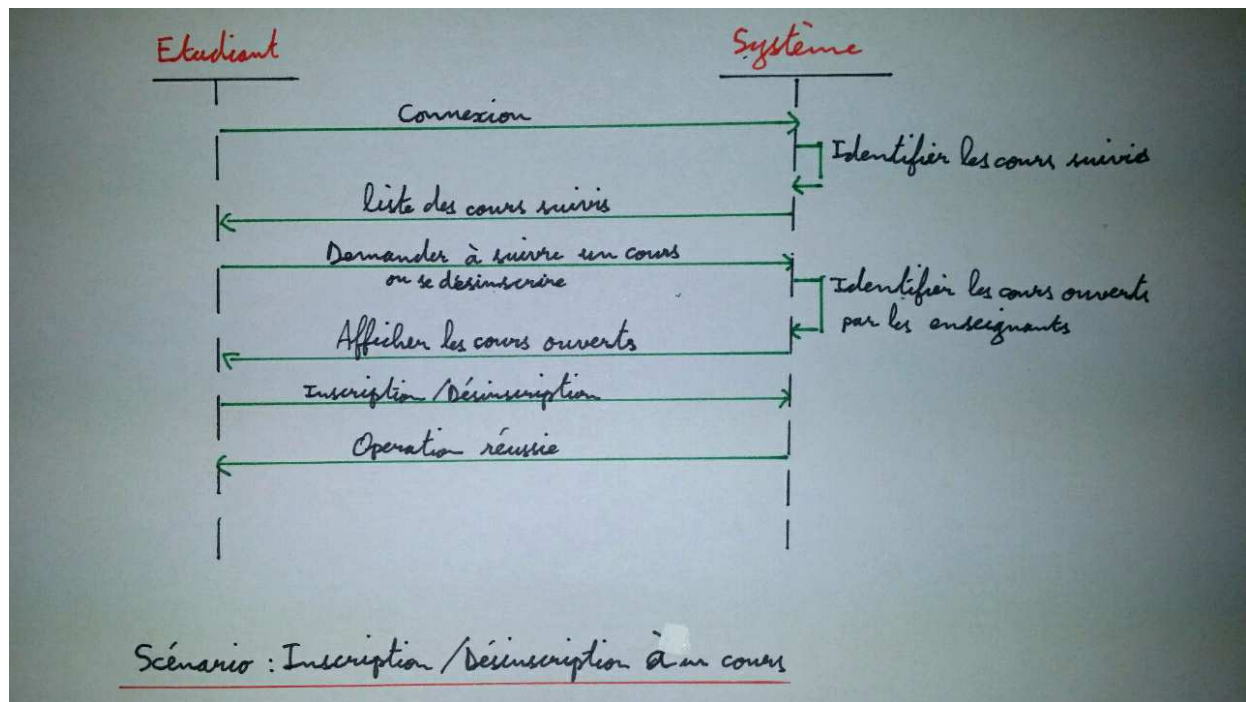 Etudiant
Système
Connexion
Identifier les cours suivis
liste des cours suivis
Demander à suivre un cours
ou se désinscrire
Identifier les cours ouverts
par les enseignants
Afficher les cours ouverts
Inscription/Désinscription
Operation réussie
Scénario : Inscription/Désinscription à un cours